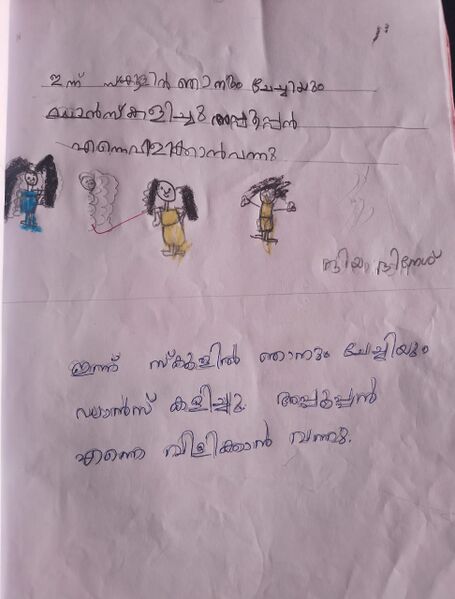 ഇന്ന് സ്കൂളിൽ ഞാനും ചേച്ചിയും
ഡാൻസ് കളിച്ചു അപ്പൂപ്പൻ
എന്നെ വിളിക്കാൻ വന്നു
ഇന്ന് സ്കൂളിൽ ഞാനും ചേച്ചിയും
ഡാൻസ് കളിച്ചു. അപ്പൂപ്പൻ
എന്നെ വിളിക്കാൻ വന്നു.